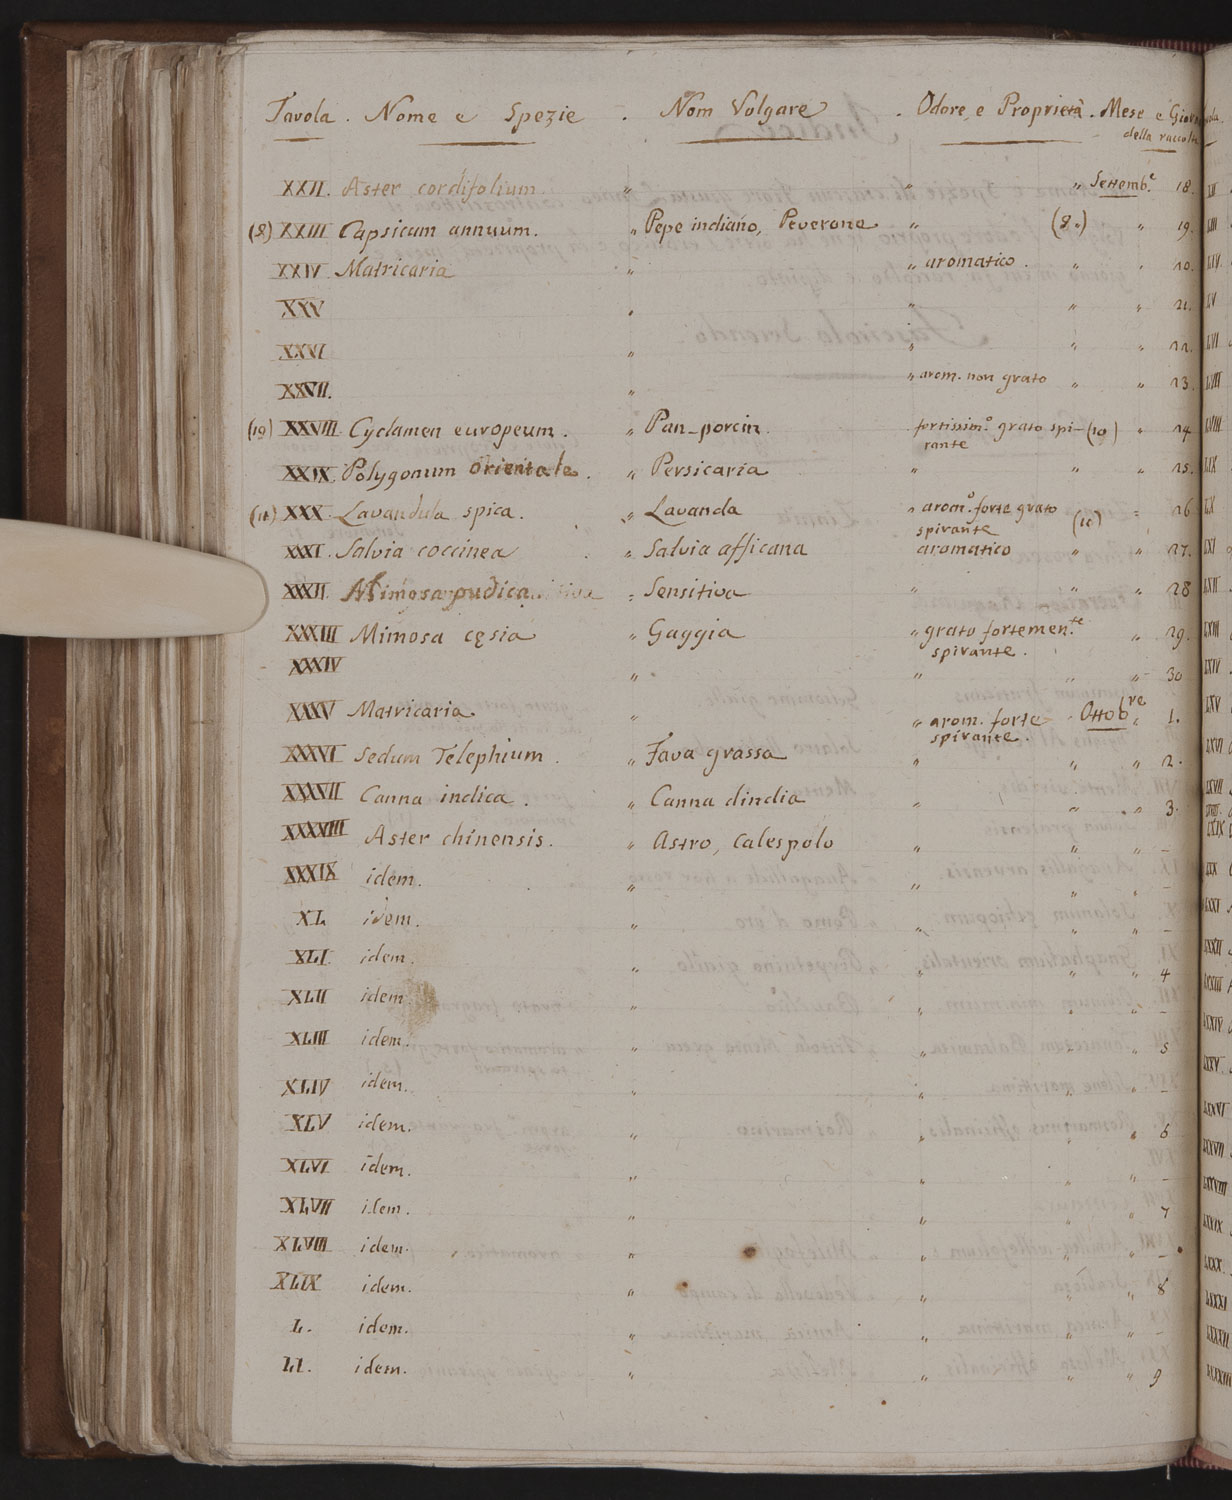 Tavola . Nome e Spezie . Nom Volgare . Odore, e Proprietà . Mese e Giorn
della raccolta
XXII. Aster cordifolium. " " " Settemb.e 18.
(8) XXIII Capsicum annuum. " Pepe indiano, Peverone " (8.) " 19.
XXIV Matricaria " " aromatico. " " 20.
XXV " " " " 21.
XXVI " " " " 22.
XXVII. " " arom. non grato " " 23.
(19) XXVIII. Cyclamen europeum. " Pan-porcin. fortissim.o grato spi-(10) " 24
rante
XXIX. Polygonum orientale. " Persicaria " " " 25.
XXX. Lavandula spica. " Lavanda " arom.o forte grato " 26
spirante
XXXI. Salvia coccinea " Salvia afficana aromatico " " 27.
XXXII. Mimosa pudica " Sensitiva " " " 28
XXXIII Mimosa cęsia " Gaggia " grato fortemen.te " 29.
spirante.
XXXIV " " " " 30
XXXV Matricaria " " arom. forte Ottobre " 1.
spirante.
XXXVI Sedum Telephium. " Fava grassa " " " 2.
XXXVII Canna indica. " Canna dindia " " " 3.
XXXVIII Aster chinensis. " Astro, Calespolo " " " –
XXXIX idem. " " " " –
XL idem. " " " " –
XLI idem. " " " " 4
XLII idem " " " " –
XLIII idem. " " " " 5
XLIV idem. " " " " –
XLV idem. " " " " 6
XLVI idem. " " " " –
XLVII idem. " " " " 7
XLVIII idem. " " " " –
XLIX idem. " " " " 8
L. idem. " " " " –
LI. idem. " " " " 9